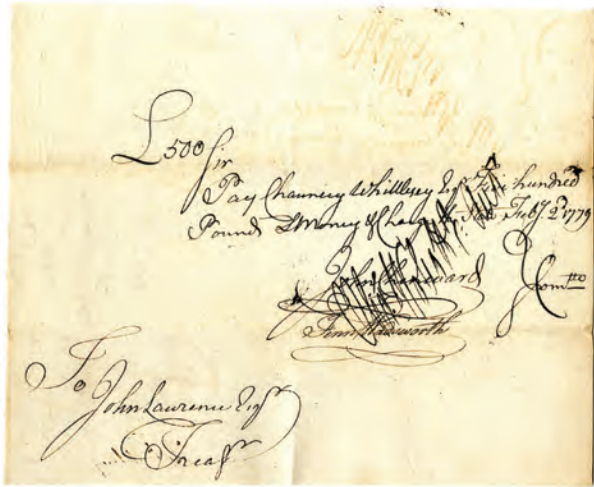 £500 Sir
Pay Chauncey Whittlesey Esqr. Five hundred
Pounds L Money & Charge the State Feby. 2d 1779
John Chenward
Fenn Wadsworth
} Comtte
To
John Lawrence Esqr
Treasr